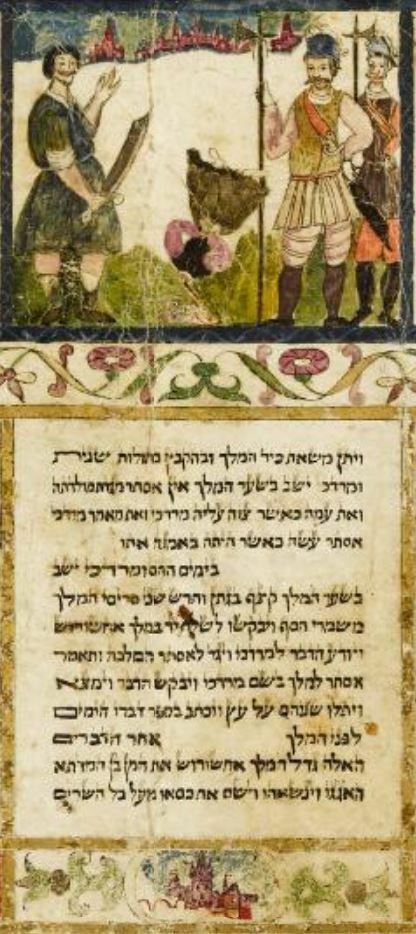 ויתן משאת כיד המלך ובהקבץ בתולות שנית
ומרדכי ישב בשער המלך אין אסתר מגדת מולדתה
ואת עמה כאשר צוה עליה מרדכי ואת מאמר מרדכי
אסתר עשה כאשר היתה באמנה אתו
בימים ההם ומרדכי ישב
בשער המלך קצף בגתן ותרש שני סריסי המלך
משמרי הסף ויבקשו לשלח יד במלך אחשורוש
ויודע הדבר למרדכי ויגד לאסתר המלכה ותאמר
אסתר למלך בשם מרדכי ויבקש הדבר וימצא
ויתלו שניהם על עץ ויכתב בספר דברי הימים
לפני המלך אחר הדברים
האלה גדל המלך אחשורוש את המן בן המדתא
האגגי וינשאהו וישם את כסאו מעל כל השרים